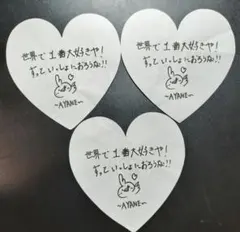 世界で1番大好きや!
ずっといっしょにおろうな!!
~AYANE~
世界で1番大好きや!
ずっといっしょにおろうな!!
~AYANE~
世界で1番大好きや!
ずっといっしょにおろうな!!
~AYANE~